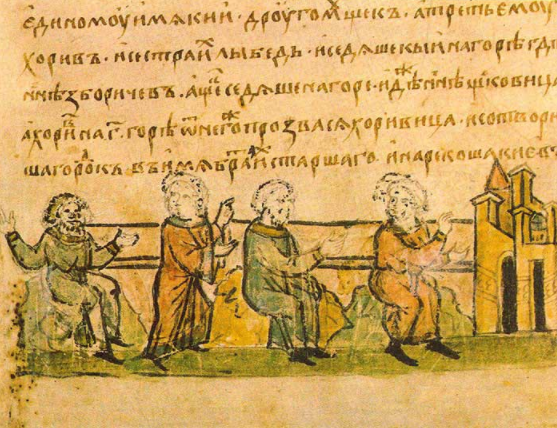 единомоу имѧ кии · дроугомꙋ щекъ · а третьемоу
хоривъ · и сестра иⷯ лыбедь · и седѧше кыи на горѣ гдѣ
ннѣ зборичевъ · а щеⷦ седѧше на горе · идеⷤ ннѣ щековица
а хориⷡ на г҃ · горѣ ѿ негоⷤ прозвасѧ хоривица · и сотвори
ша гороⷣкъ · въ имѧ браⷮ иⷯ старшаго · и нарекоша киевъ